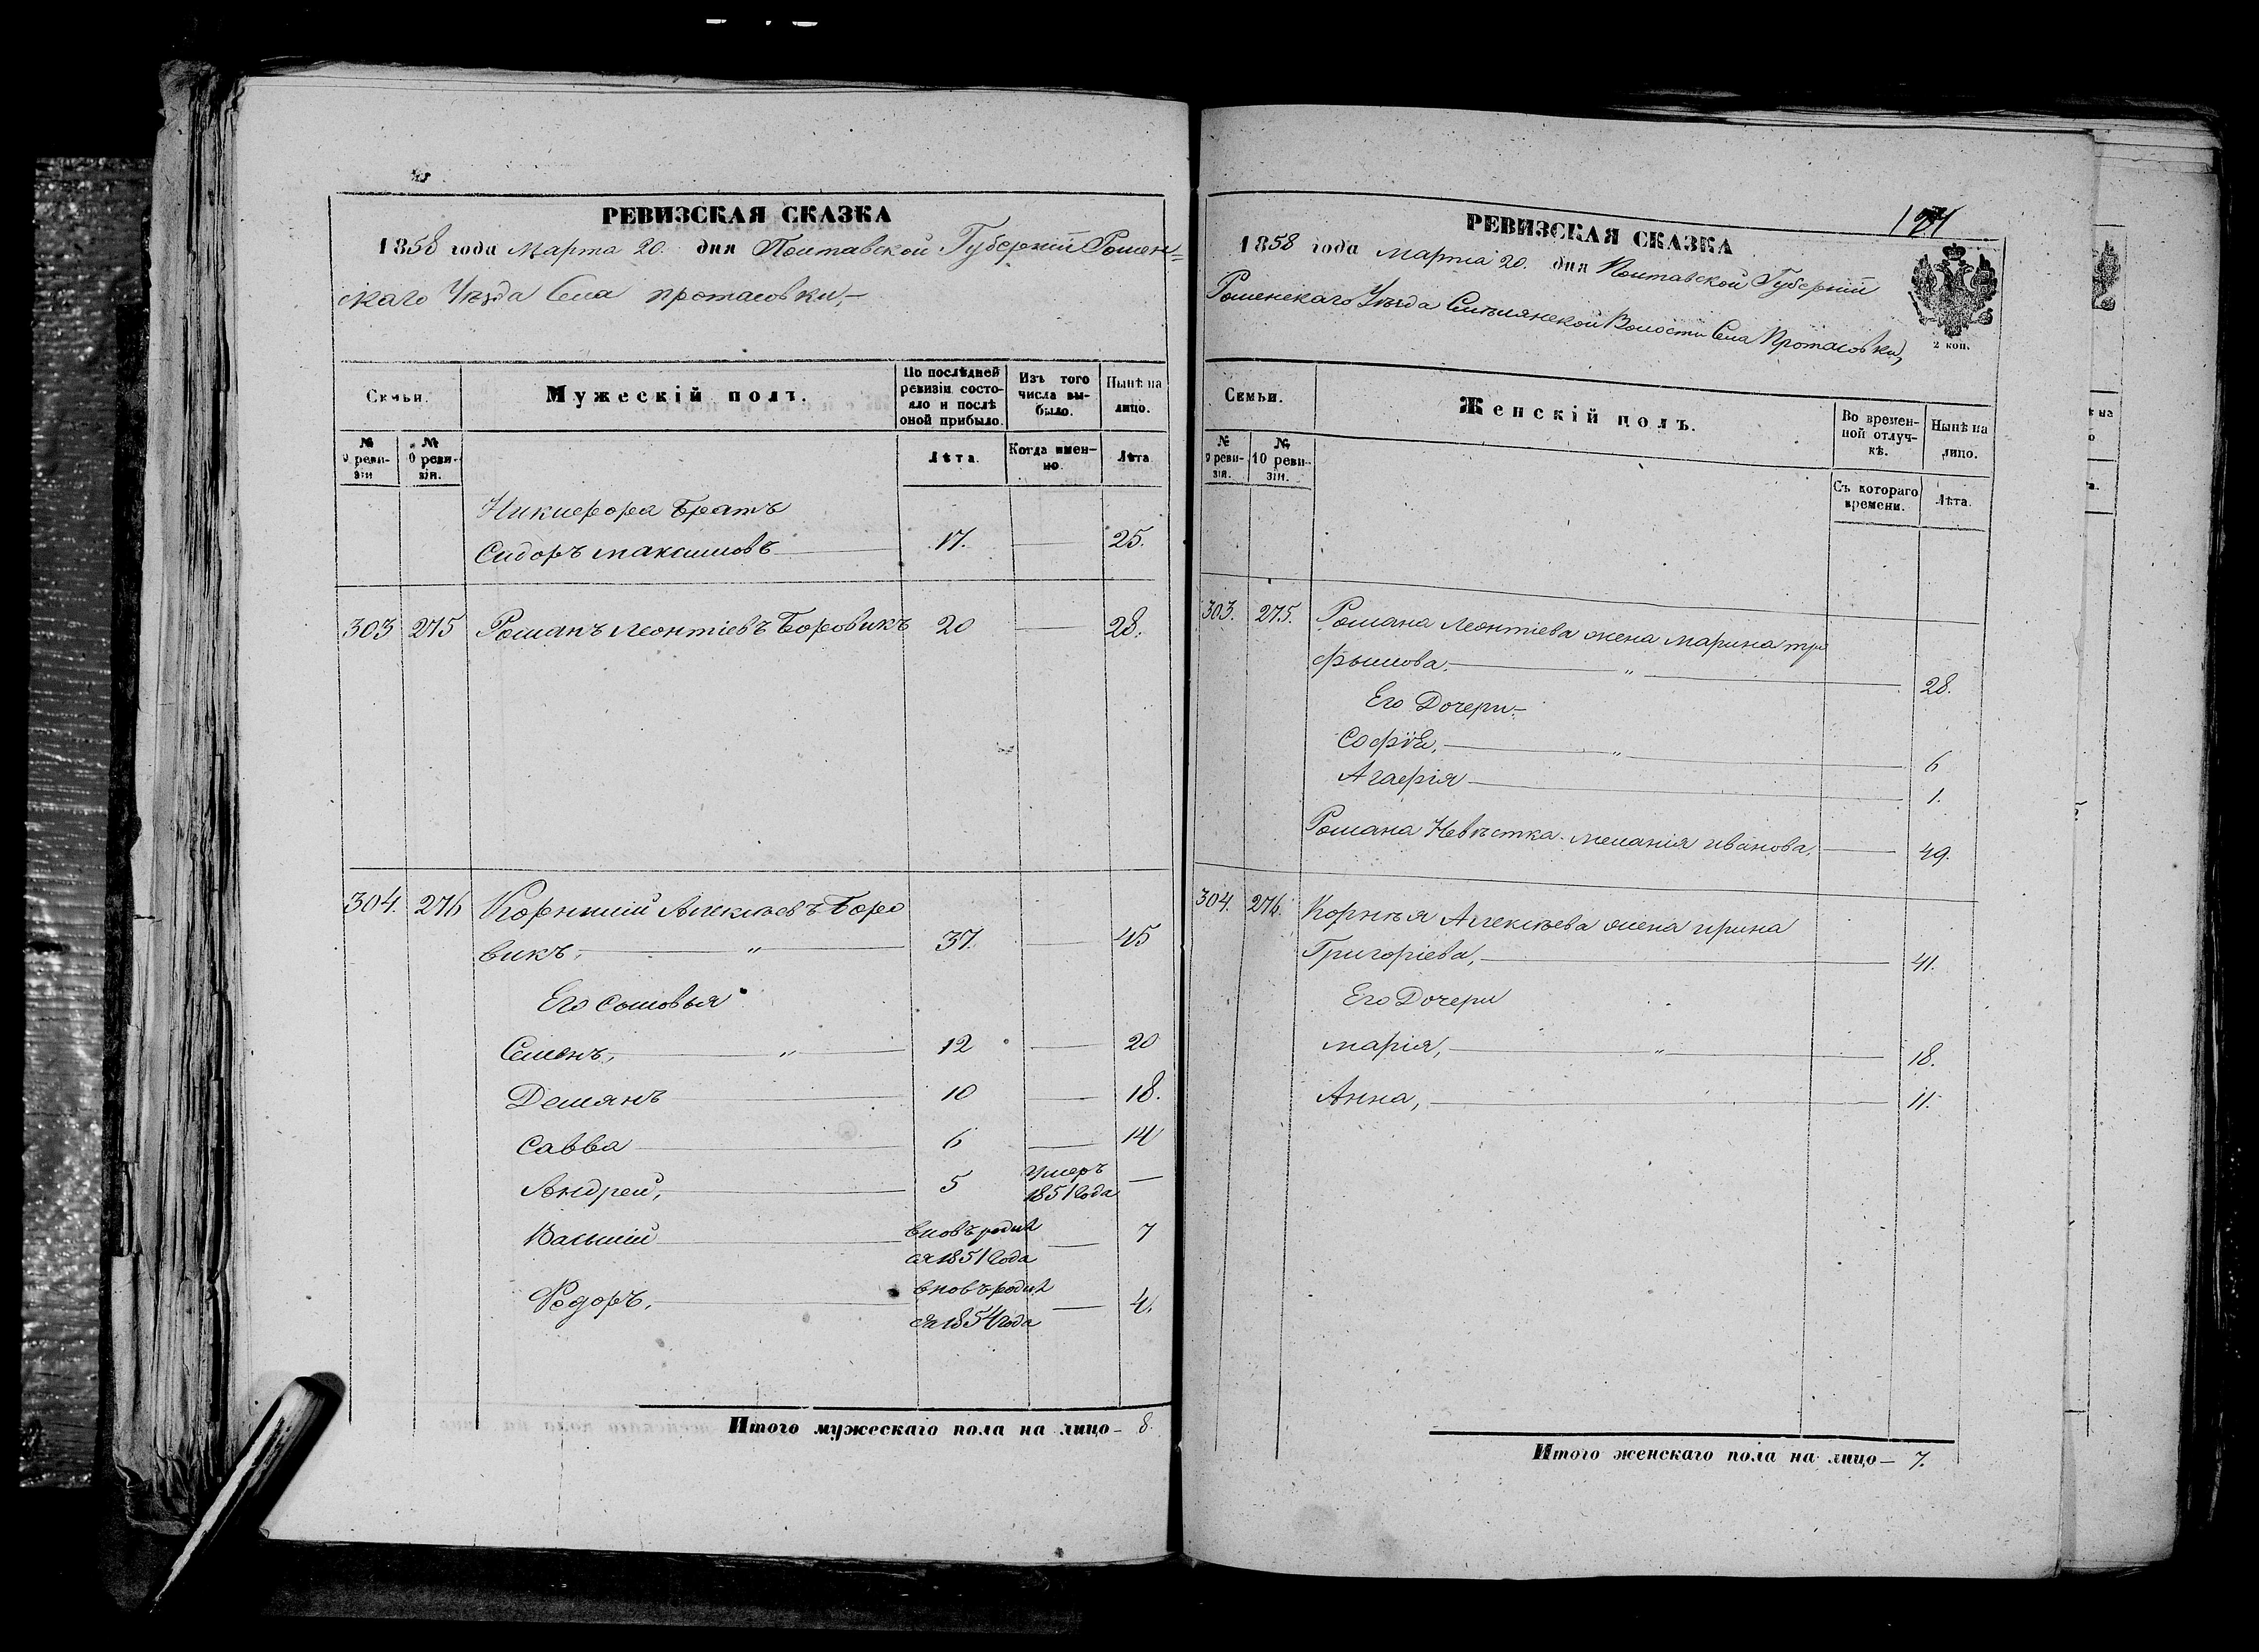 РЕВИЗСКАЯ СКАЗКА
1858 года Марта 20. дня Полтавской Губерніи Ромен=
скаго Уѣзда Села Протасовки,—
Семьи.
Мужескій полъ.
По послѣдней ревизіи состо-яло и послѣ оной прибыло.
Изъ того числа вы-было.
Нынѣ на лицо.
№ 9 реви-зіи
№ 10 реви-зіи.
Лѣта.
Когда имен-но.
Лѣта
Никифора Братъ
Сидоръ Максимовъ 17. — 25.
303 275 Романъ Леонтіевъ Боровикъ 20 — 28.
304. 276 Корнилій Алексѣевъ Боро
викъ, " 37. — 45
Его Сыновья
Семенъ, " 12 — 20
Демянъ 10 — 18.
Савва 6 — 14
Андрей, 5 умеръ 1851 Года —
Василий вновь родил ся 1851 Года — 7
Федоръ, вновь родил ся 1854 года — 4.
Итого мужескаго пола на лицо— 8.
РЕВИЗСКАЯ СКАЗКА
1858 года Марта 20. дня Полтавской Губерніи
Роменскаго Уѣзда Смѣлянской Волости Села Протасовки,
2 коп.
Семьи.
Женскій полъ.
Во времен-ной отлуч-кѣ.
Нынѣ на лицо.
№ 9 реви-зіи.
№ 10 реви-зіи.
Съ котораго времени.
Лѣта.
303. 275. Романа Леонтіева жена Марина Три
фынова. " 28.
Его Дочери—
Софія, " 6
Агафія 1.
Романа Невѣстка Меланія Иванова, 49.
304. 276. Корнѣя Алексѣева жена Ирина
Григоріева, 41.
Его Дочери
Марія, " 18.
Анна, 11.
Итого женскаго пола на лицо— 7.